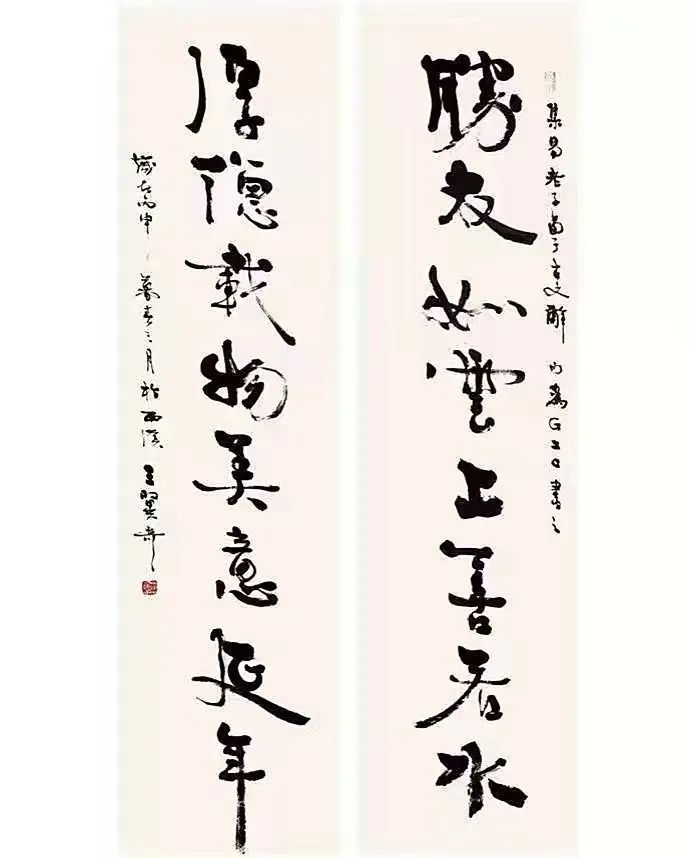 集易老子荀子文辭為G20書之
勝友如雲上善若水
厚德載物美意延年
歲在丙申暮春三月於西溪王翼奇